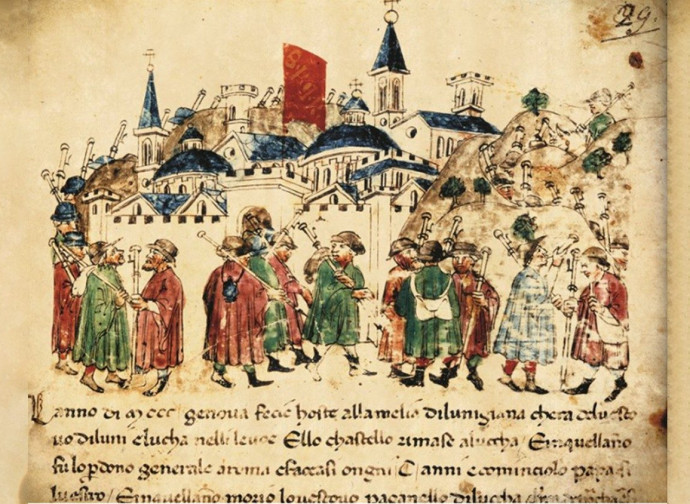 29.
Lanno di mccc genova fecie hoste alla melia dilunigiana chera delvesco
vo diluni elucha nelli levoe Ello chastello rimase alucha / Einquellano
fu lo pdono generale aroma efaccasi ongni C / anni ecominciolo papa si
lvestro / Einquellano morio lovescovo paganello dilucha